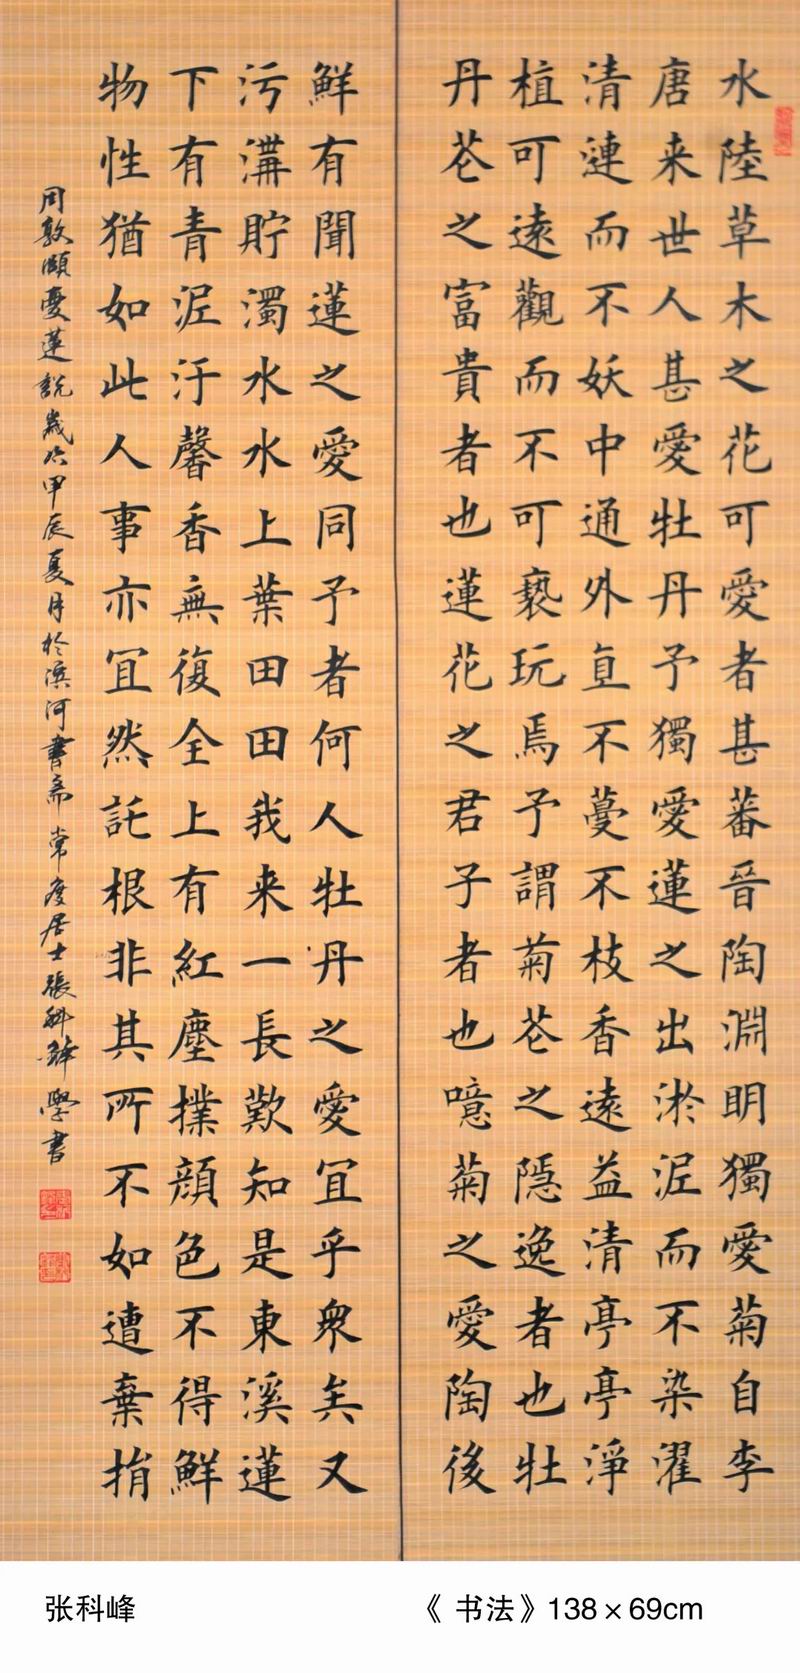 水陸草木之花可愛者甚蕃晉陶淵明獨愛菊自李
唐来世人甚愛牡丹予獨愛蓮之出淤泥而不染濯
清漣而不妖中通外直不蔓不枝香遠益清亭亭淨
植可遠觀而不可褻玩焉予謂菊芲之隱逸者也牡
丹芲之富貴者也蓮花之君子者也噫菊之愛陶後
鮮有聞蓮之愛同予者何人牡丹之愛宜乎衆矣又
污溝貯濁水水上葉田田我来一長歎知是東溪蓮
下有青泥汙馨香無復全上有紅塵撲顔色不得鮮
物性猶如此人事亦宜然託根非其所不如遭棄捐
周敦頤愛蓮說歲次甲辰夏月於濱河書斋常度居士張科鋒學書
张科峰
《 书法》138×69cm